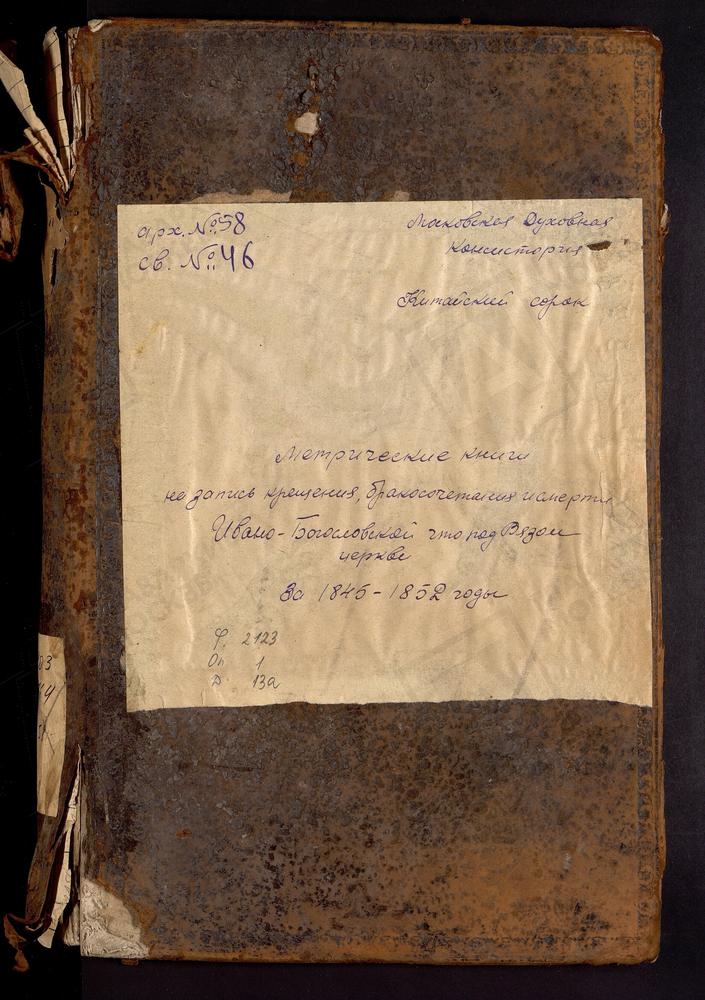 арх. №58
св. №46
Московская Духовная
Консистория
Китайский сорок
Метрические книги
на запись крещения, бракосочетания и смерти
Ивано-Богословской что под Вязом
церкви
За 1845-1852 годы
Ф. 2123
Оп 1
Д 13а